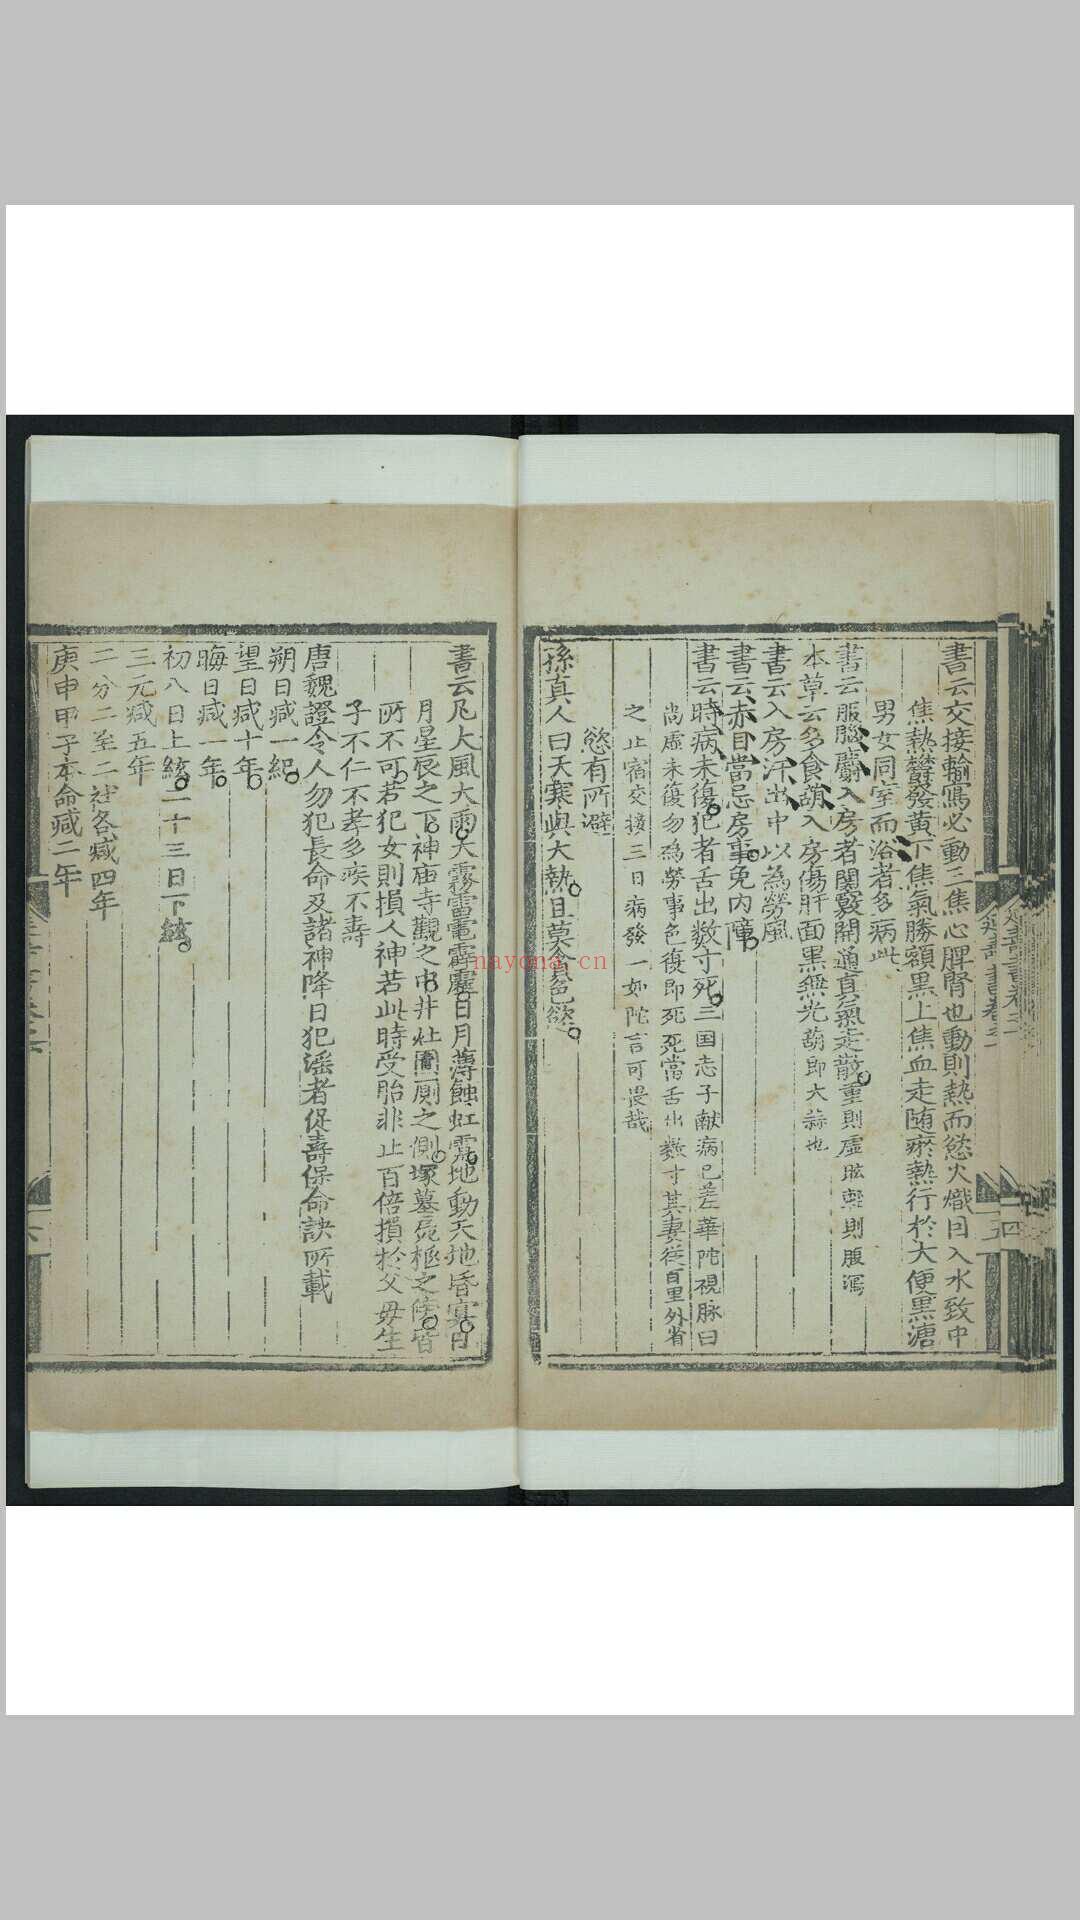 書云交接輸寫必動三焦心脾腎也動則熱而慾火熾因入水致中
焦熱鬱發黄下焦氣勝額黒上焦血走随瘀熱行於大便黒溏
男女同室而浴者多病此
書云服腦麝入房者關竅開通真氣走散重則虚眩輕則腦瀉
本草云多食葫入房傷肝面黒無光葫即大蒜也
書云入房汗出中以為勞風
書云赤目當忌房事免内障
書云時病未復犯者舌出數寸死三国志子献病已差華陀視脉曰
尚虚未復勿為勞事色復即死死當舌出數寸其妻從百里外省
之止宿交接三日病發一如陀言可畏哉
慾有所避
孫真人曰大寒與大熱且莫貪色慾
書云凡大風大雨大霧雷電霹靂日月薄蝕虹霓地動天地昏冥日
月星辰之下神庙寺觀之中井灶圊厠之側塚墓屍柩之傍皆
所不可若犯女則損人神若此時受胎非止百倍損於父母生
子不仁不孝多疾不壽
唐魏證令人勿犯長命及諸神降日犯淫者促壽保命訣所載
朔日減一紀
望日減十年
晦日減一年
初八日上絃二十三日下絃
三元減五年
二分二至二社各減四年
庚申甲子本命減二年
延壽書卷之一
五
六
四
nayona.cn